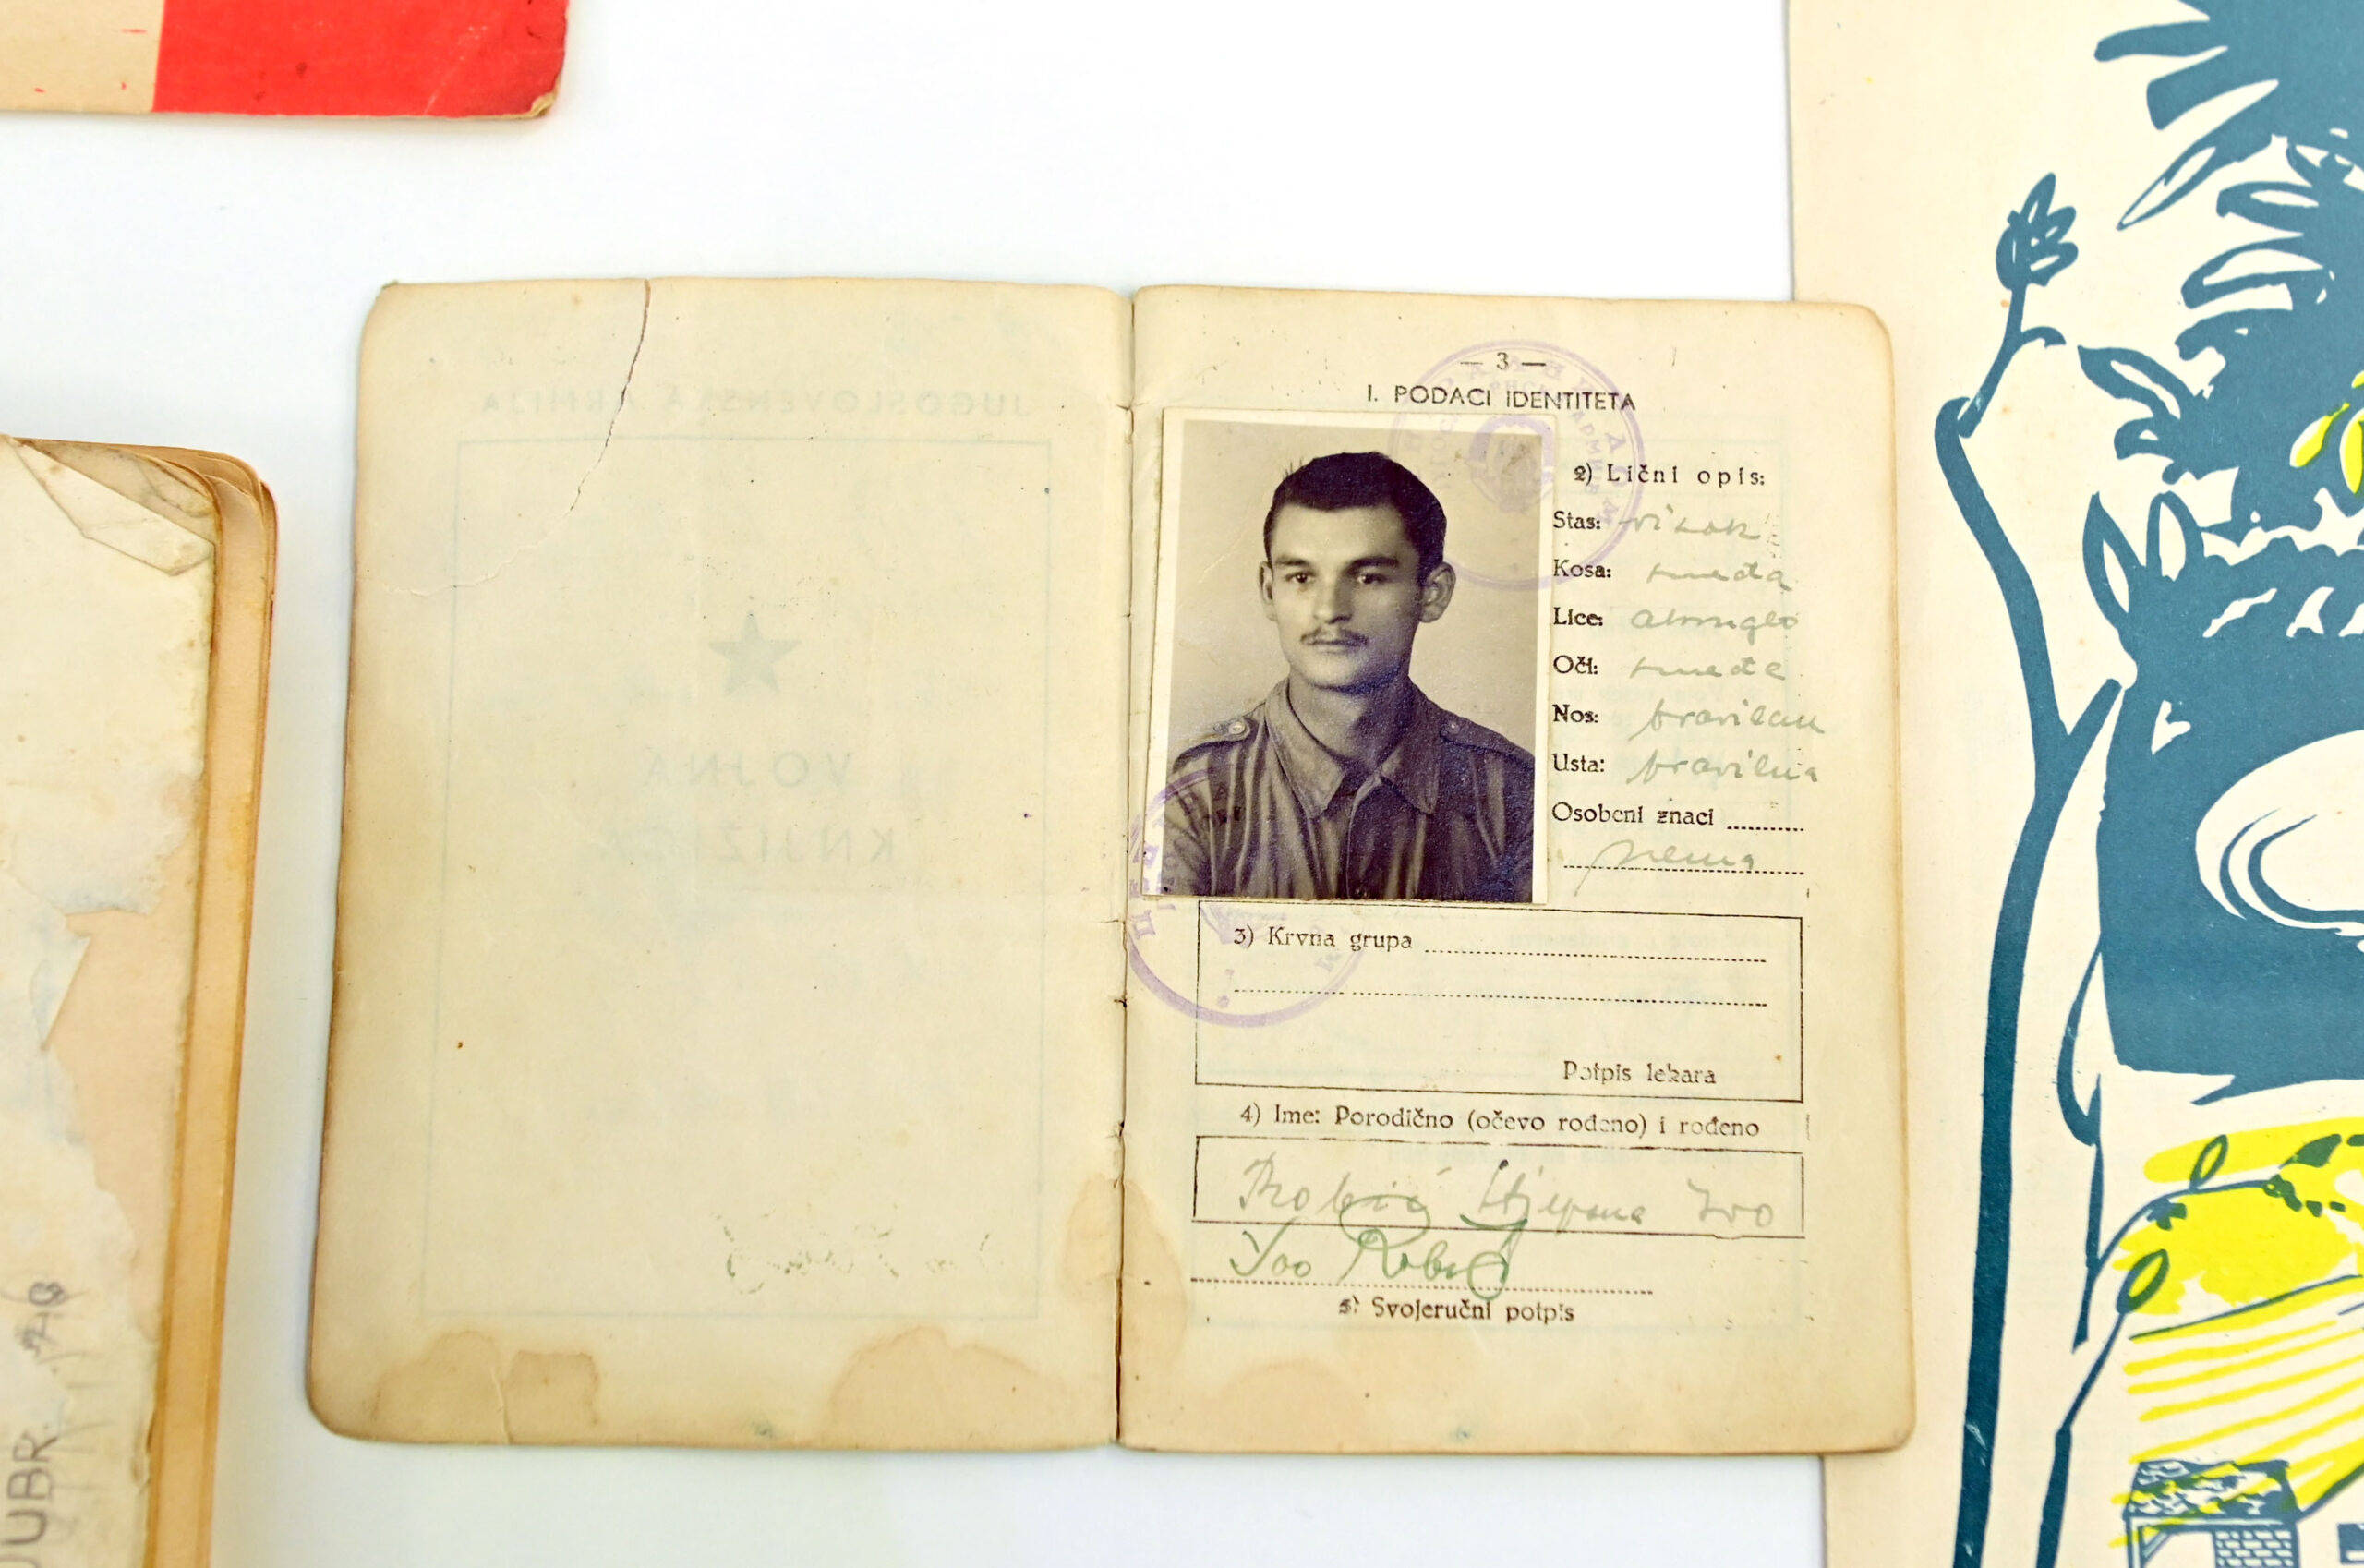 JUGOSLOVENSKA ARMIJA
VOJNA
KNJIŽICA
— 3 —
I. PODACI IDENTITETA
2) Lični opis:
Stas: visok
Kosa: smeđa
Lice: duguljasto
Oči: smeđe
Nos: pravilan
Usta: pravilna
Osobeni znaci
nema
3) Krvna grupa
Potpis lekara
4) Ime: Porodično (očevo rođeno) i rođeno
Robić Stjepana Ivo
Ivo Robić
5) Svojeručni potpis
UBR.